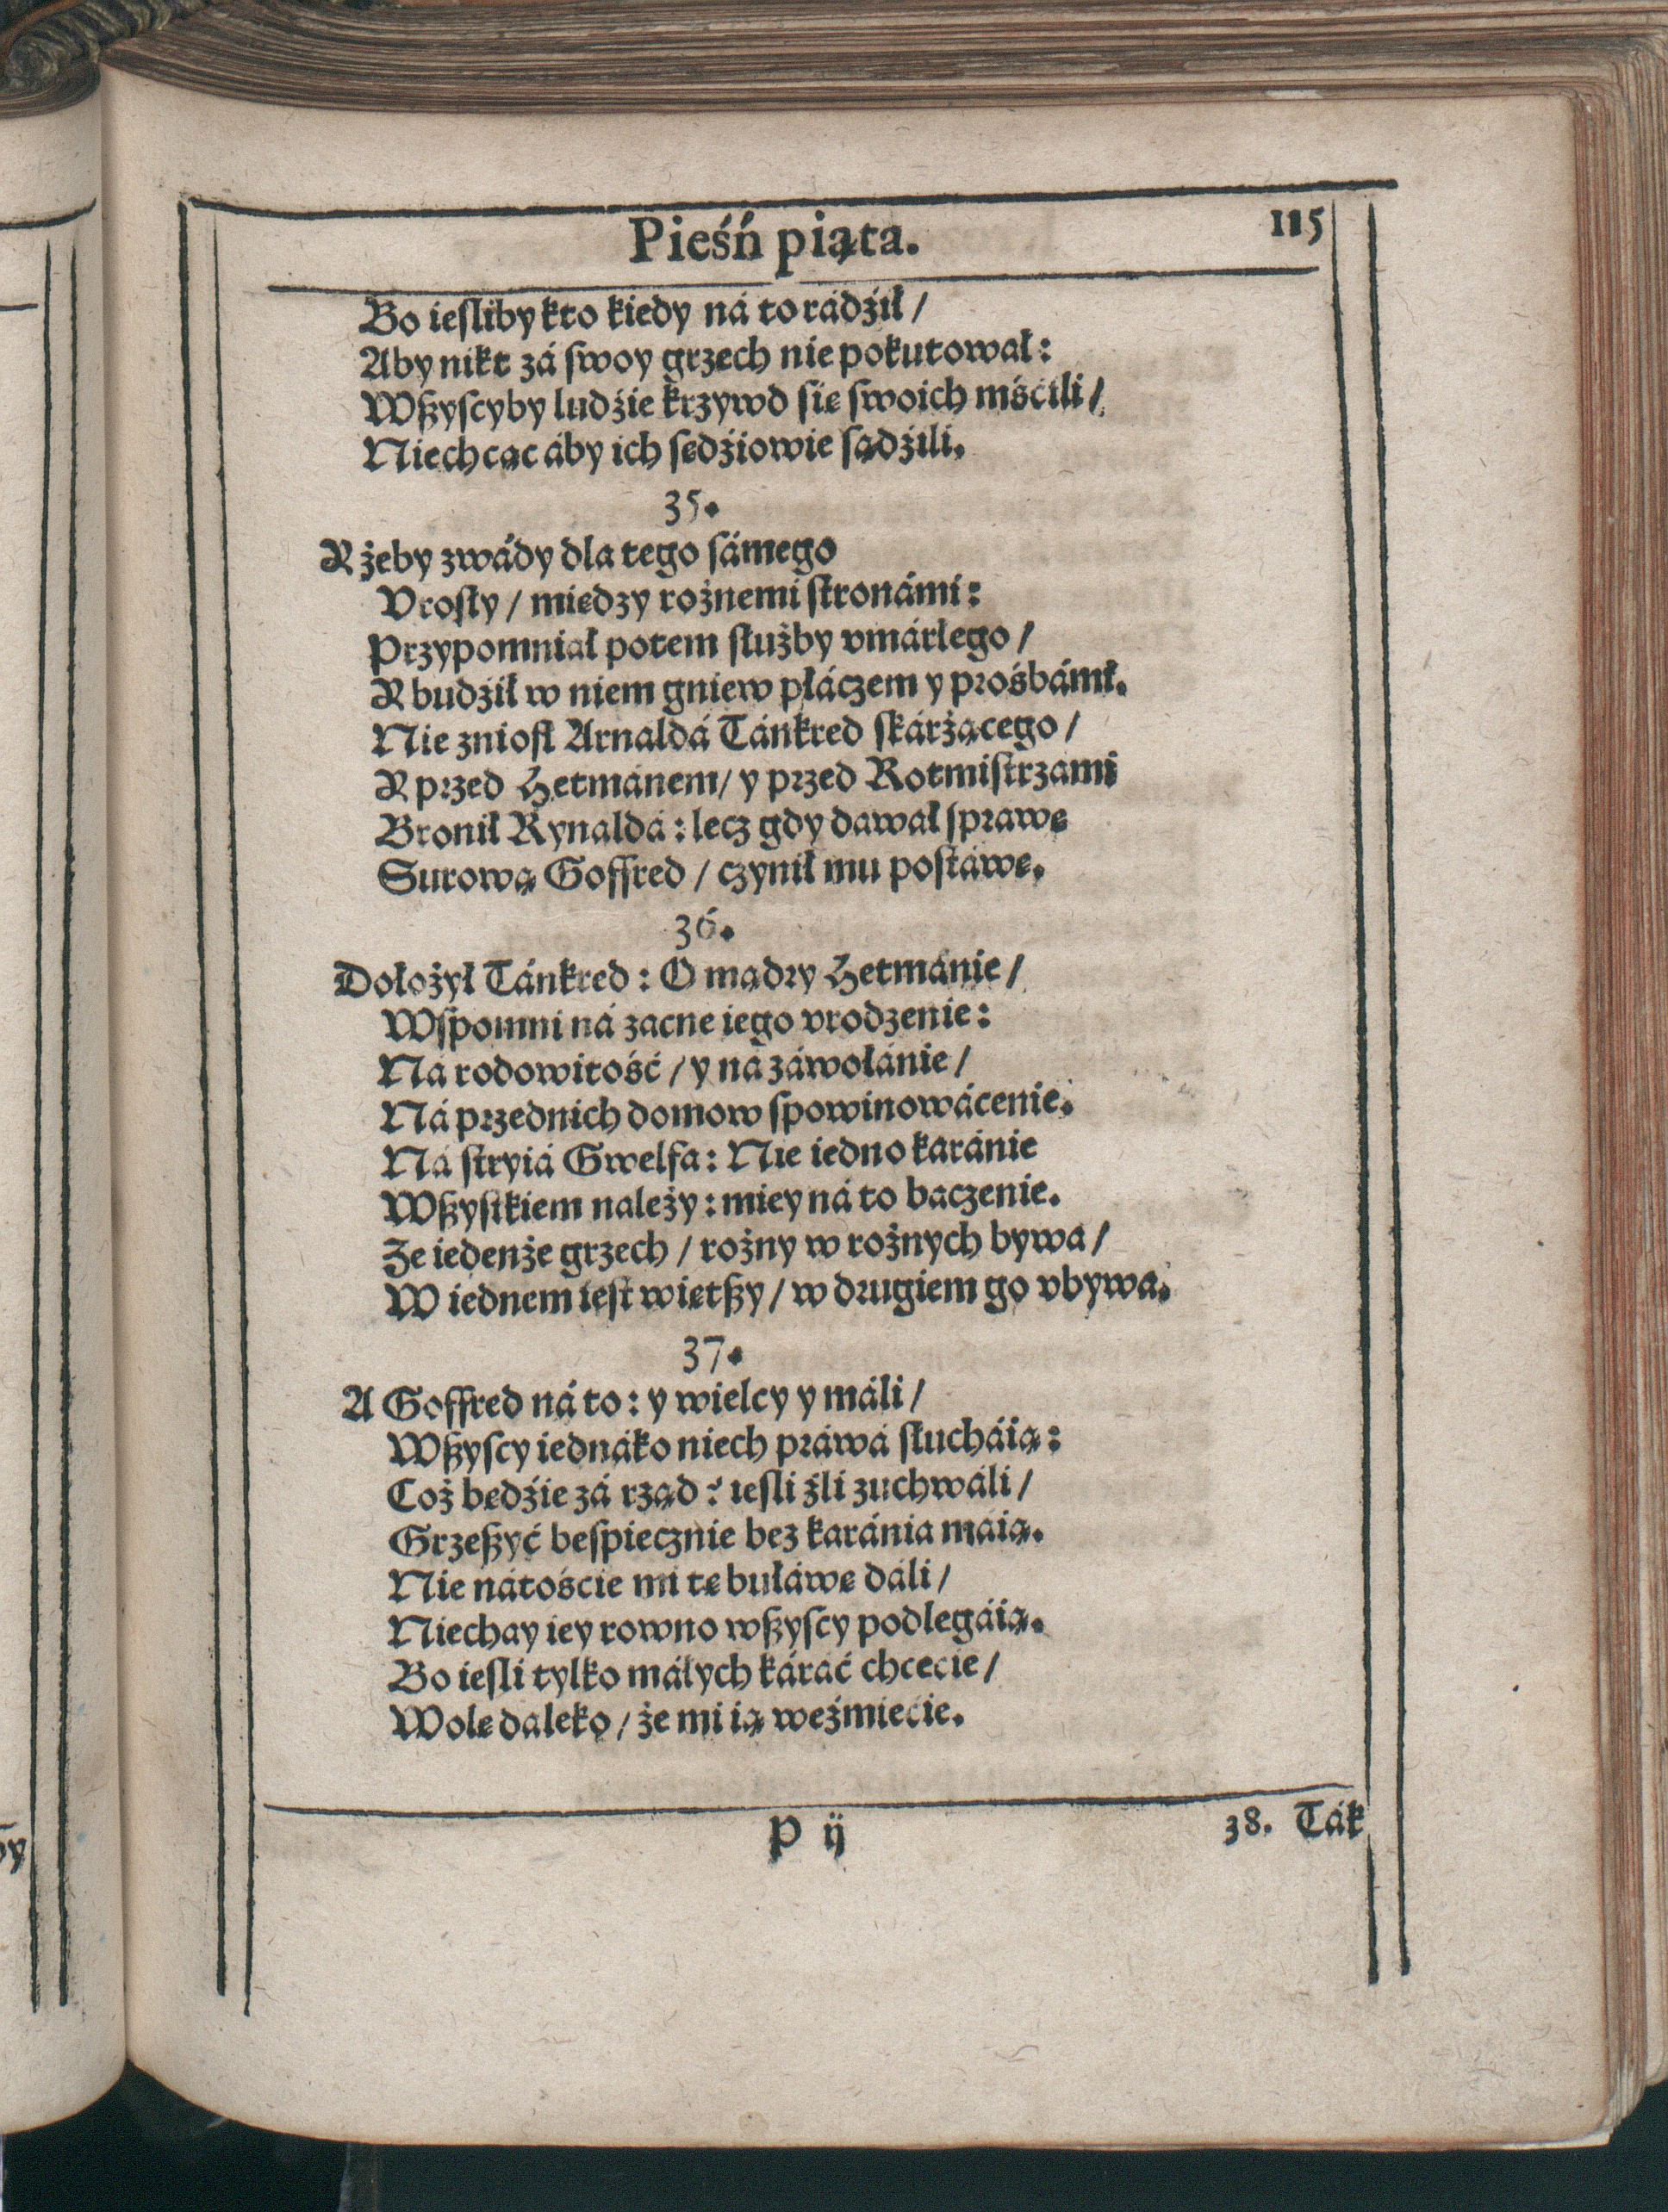 Pieśń piąta.
115
Bo ieſliby kto kiedy ná to rádźił /
Aby nikt zá ſwoy grzech nie pokutował:
Wßyſcyby ludźie krzywd ſie ſwoich mśćili /
Niechcąc áby ich ſędźiowie ſądźili.
35.
Y żeby zwády dla tego ſámego
Vroſły / miedzy rożnemi ſtronámi:
Przypomniał potem ſłużby vmárłego /
Y budźił w niem gniew płáczem y prośbámi.
Nie znioſł Arnaldá Tánkred ſkárżącego /
Y przed Hetmánem / y przed Rotmiſtrzami
Bronił Rynaldá: lecz gdy dawał ſprawę
Surową Goffred / czynił mu poſtáwę.
36.
Dołożył Tánkred: O mądry Hetmánie /
Wſpomni ná zacne iego vrodzenie:
Ná rodowitość / y ná záwołánie /
Ná przednich domow ſpowinowácenie.
Ná ſtryiá Gwelfa: Nie iedno karánie
Wßyſtkiem należy: miey ná to baczenie.
Że iedenże grzech / rożny w rożnych bywa /
W iednem ieſt więtßy / w drugiem go vbywa.
37.
A Goffred ná to: y wielcy y máli /
Wßyſcy iednáko niech práwá ſłucháią:
Coż będźie zá rząd? ieſli źli zuchwáli /
Grzeßyć beſpiecznie bez karánia maią.
Nie nátoście mi tę buławę dáli /
Niechay iey rowno wßyſcy podlegáią.
Bo ieſli tylko máłych káráć chcecie /
Wolę daleko / że mi ią weźmiecie.
P ij
38. Ták